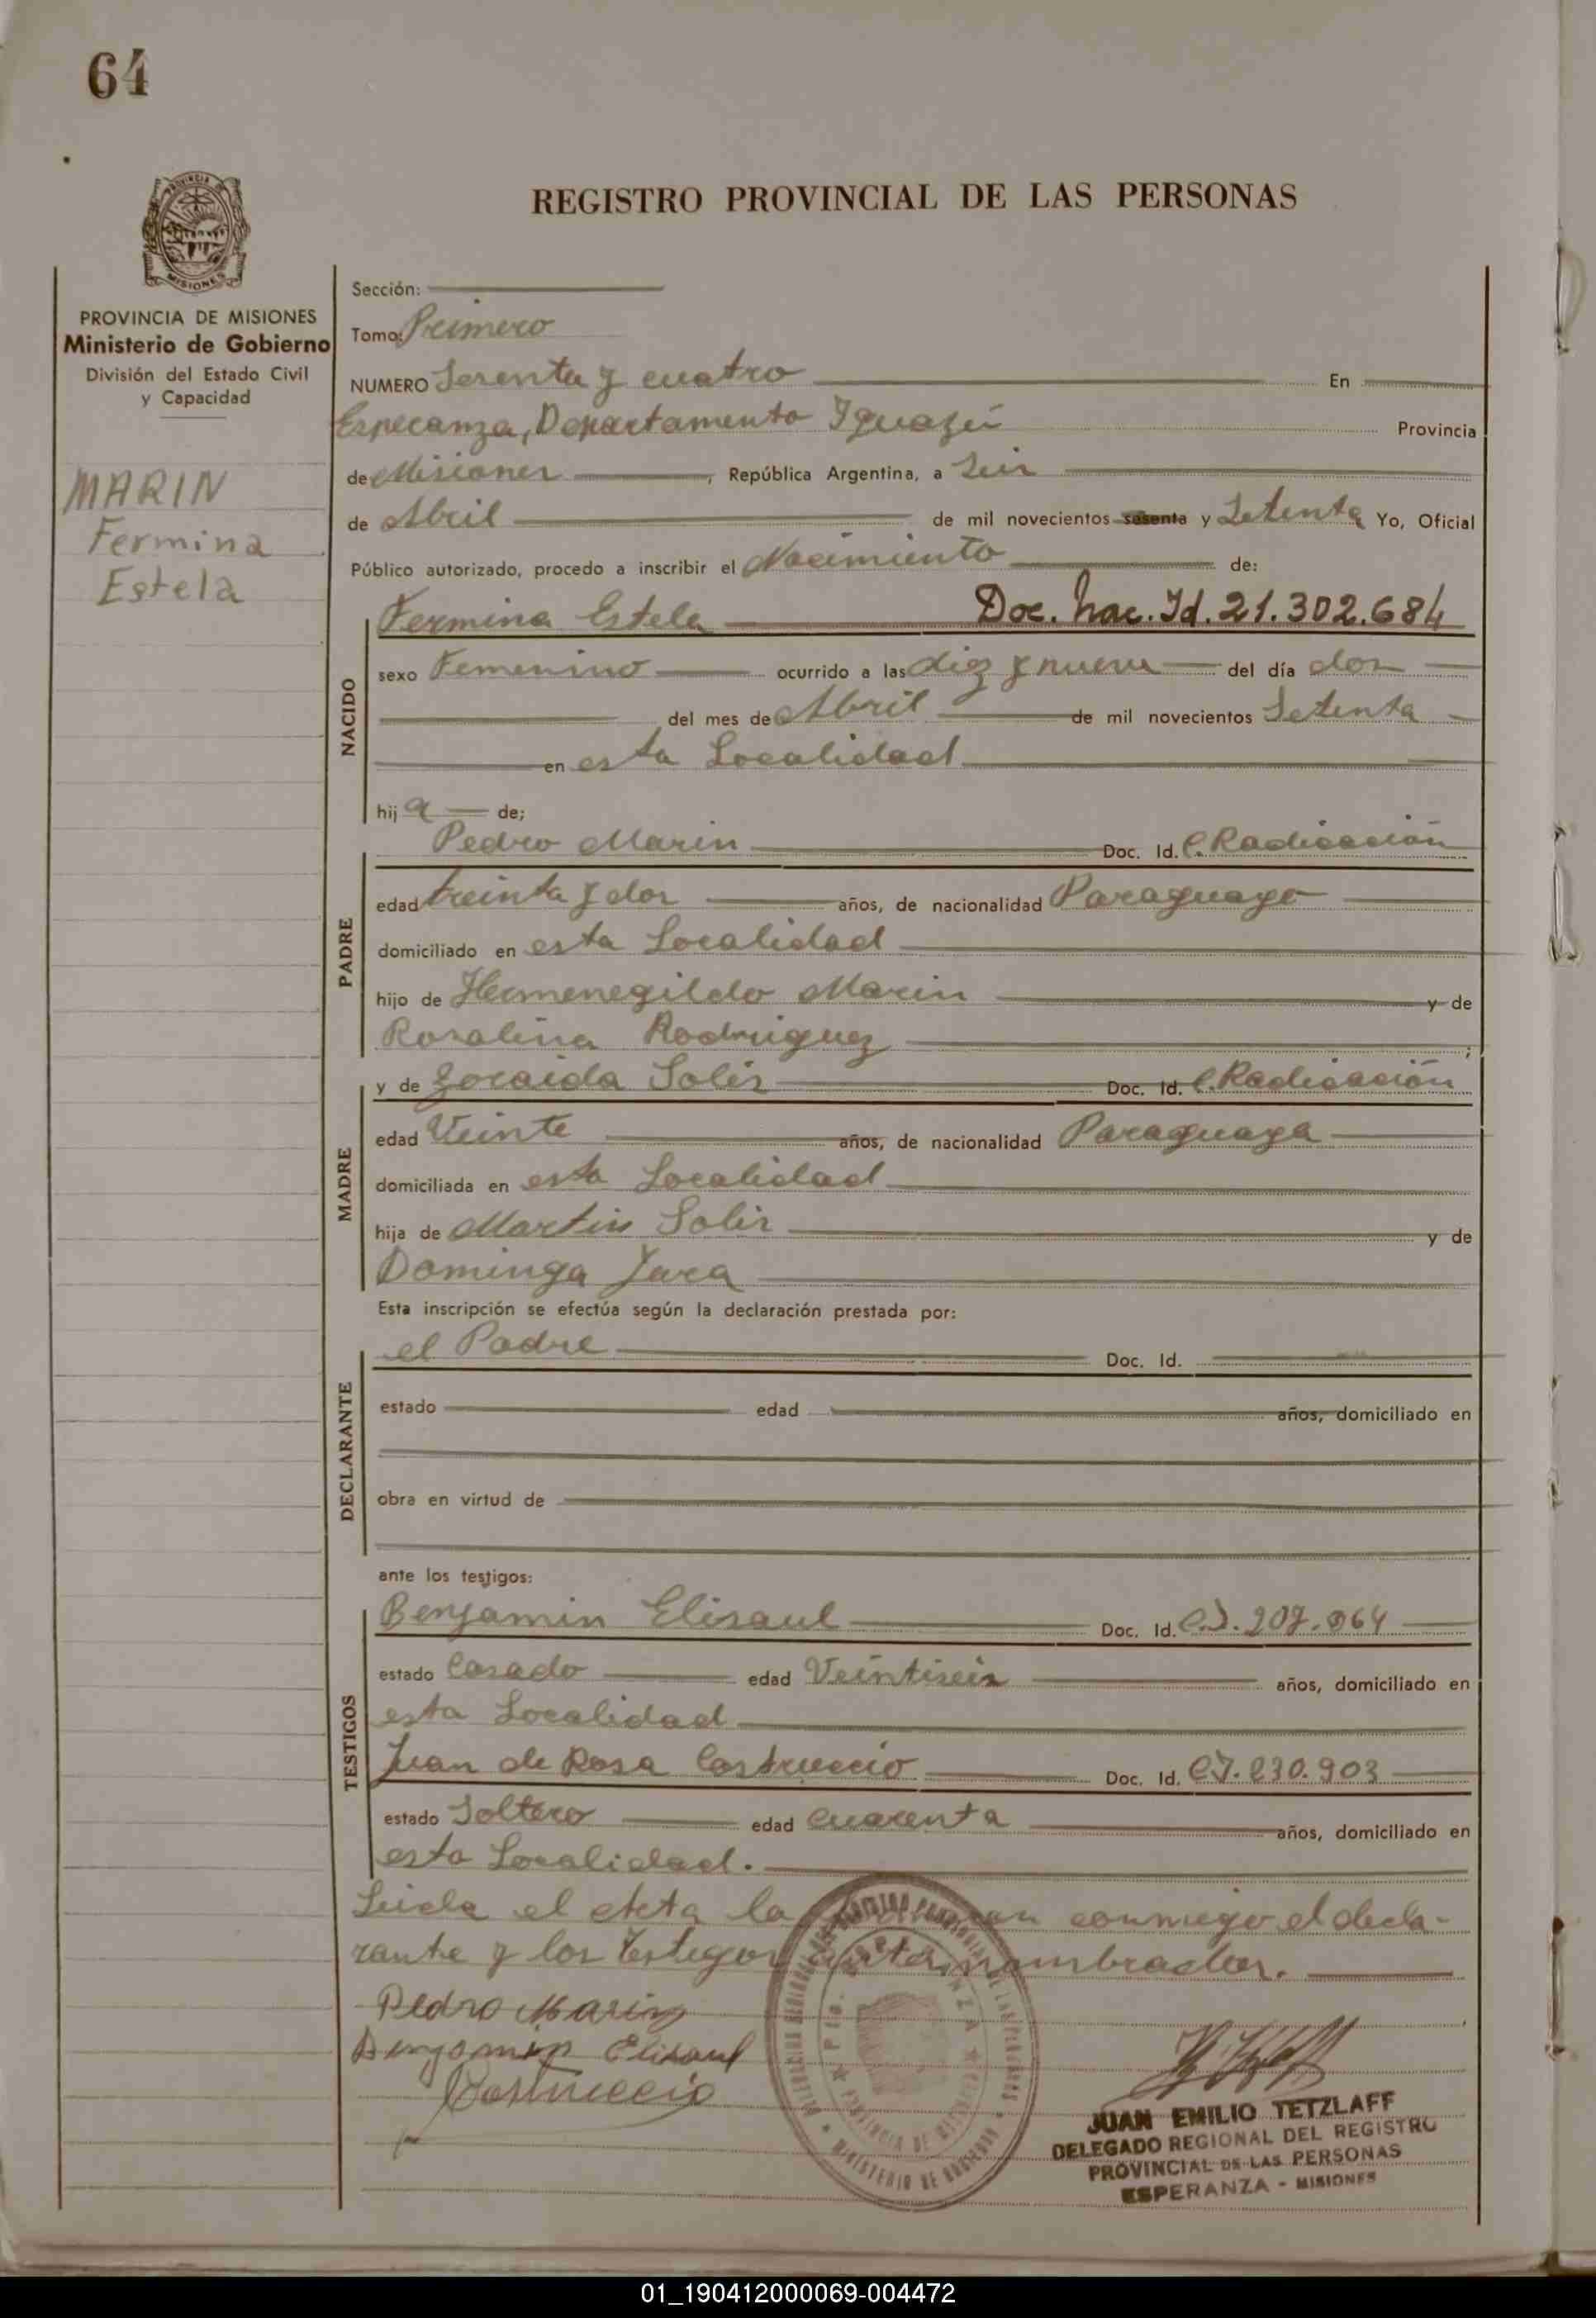 64
REGISTRO PROVINCIAL DE LAS PERSONAS
PROVINCIA DE MISIONES
Ministerio de Gobierno
División del Estado Civil
y Capacidad
MARIN
Fermina
Estela
Sección:
Tomo: Primero
NUMERO Sesenta y cuatro En
Esperanza, Departamento Iguazú Provincia
de Misiones, República Argentina, a Seis
de Abril de mil novecientos sesenta y Setenta Yo, Oficial
Público autorizado, procedo a inscribir el Nacimiento de:
Fermina Estela Doc. Nac. Id. 21.302.684
NACIDO
sexo Femenino ocurrido a las diez y nueve del día dos
del mes de Abril de mil novecientos Setenta
en esta Localidad
hija de;
Pedro Marin Doc. Id. C. Radicación
PADRE
edad treinta y dos años, de nacionalidad Paraguayo
domiciliado en esta Localidad
hijo de Hermenegildo Marin y de
Rosalina Rodriguez;
y de Zoraida Solis Doc. Id. C. Radicación
MADRE
edad Veinte años, de nacionalidad Paraguaya
domiciliada en esta Localidad
hija de Martin Solis y de
Dominga Jara
Esta inscripción se efectúa según la declaración prestada por:
el Padre Doc. Id.
DECLARANTE
estado edad años, domiciliado en
obra en virtud de
ante los testigos:
TESTIGOS
Benjamin Elisaul Doc. Id. C.I. 207.964
estado Casado edad Veintiseis años, domiciliado en
esta Localidad
Juan de Rosa Costruccio Doc. Id. C.I. 230.903
estado Soltero edad Cuarenta años, domiciliado en
esta Localidad.
Leida el Acta la conmigo el decla-
rante y los Testigos antes nombrados.
Pedro Marin
Benjamin Elisaul
Costruccio
JUAN EMILIO TETZLAFF
DELEGADO REGIONAL DEL REGISTRO
PROVINCIAL DE LAS PERSONAS
ESPERANZA - MISIONES
01_190412000069-004472